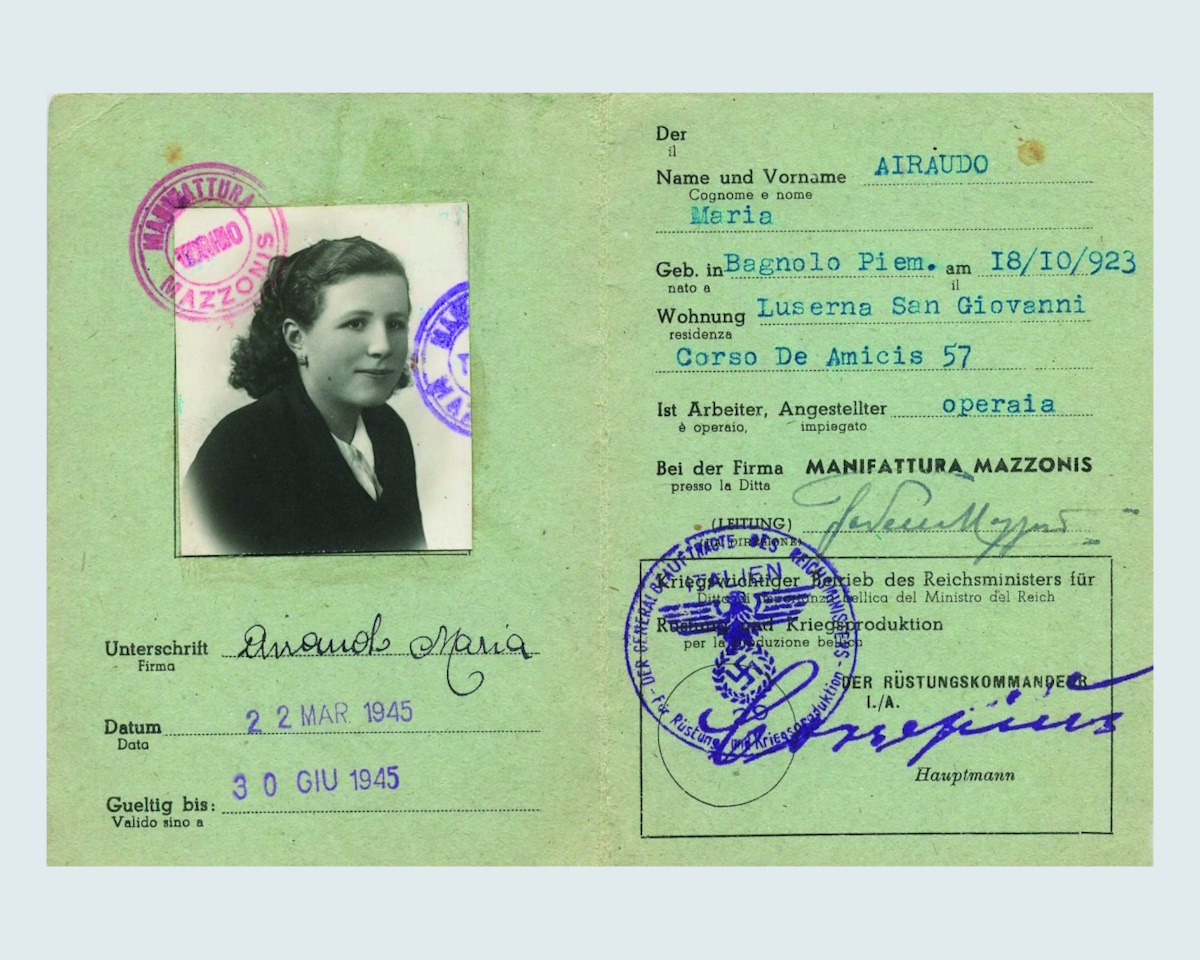 MANIFATTURA
TORINO
MAZZONIS
Unterschrift Airaudo Maria
Firma
Datum 22 MAR. 1945
Data
Gueltig bis: 30 GIU 1945
Valido sino a
Der
il
Name und Vorname AIRAUDO
Cognome e nome
Maria
Geb. in Bagnolo Piem. am I8/IO/923
nato a il
Wohnung Luserna San Giovanni
residenza
Corso De Amicis 57
Ist Arbeiter, Angestellter operaia
è operaio, impiegato
Bei der Firma MANIFATTURA MAZZONIS
presso la Ditta
(LEITUNG)
(LA DIREZIONE)
DER GENERALBEAUFTRAGTE DES REICHSMINISTERS
ITALIEN
Kriegswichtiger Betrieb des Reichsministers für
Ditta di importanza bellica del Ministro del Reich
Rüstung und Kriegsproduktion
per la produzione bellica
DER RÜSTUNGSKOMMANDEUR
I./A.
- Für Rüstung und Kriegsproduktion -
Hauptmann